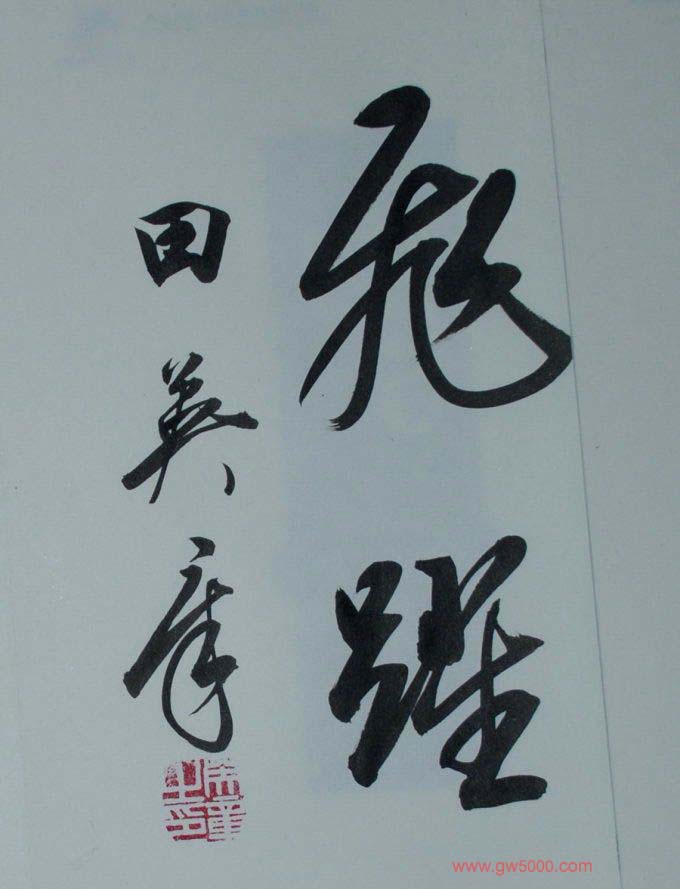 飛躍
田英章
www.gw5000.com